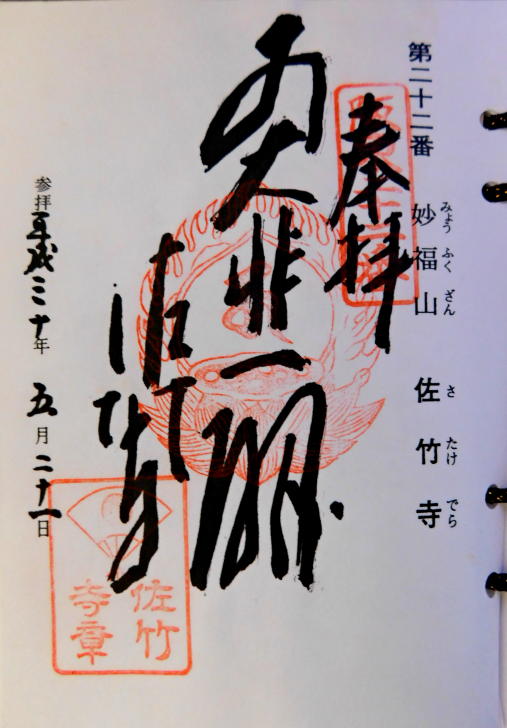 第二十二番 妙福山 佐竹寺
みょう ふく ざん さ たけ でら
奉拝
大悲
佐竹寺
参拝平成三十年 五月二十一日
佐竹
寺章